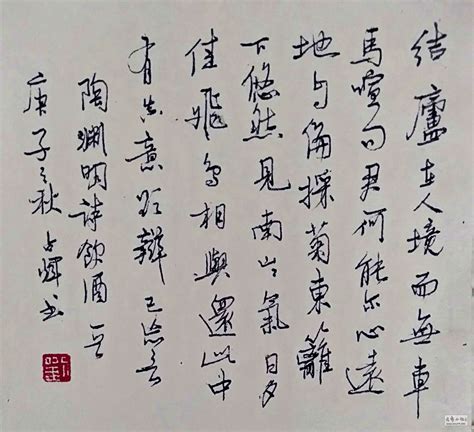 结廬在人境而無車
馬喧问君何能尔心遠
地自偏採菊東籬
下悠然見南山氣日夕
佳飛鸟相與還此中
有真意欲辯已忘言
陶渊明詩飲酒
庚子之秋占辉书